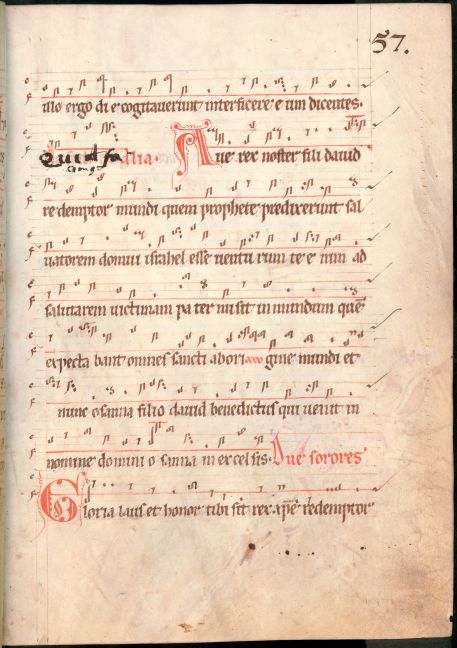 57.
illo ergo di e cogitauerunt interficere e um dicentes.
Quid fa lia. Aue rex noster fili dauid
redemptor mundi quem prophete predixerunt sal
uatorem domui israhel esse uentu rum te e nim ad
salutarem uictimam pa ter misit in mundum quē
expecta bant omnes sancti abori gine mundi et
nunc osanna filio dauid benedictus qui uenit in
nomine domini o sanna in excel sis. Due sorores
Gloria laus et honor tibi sit rex xp̄e redemptor